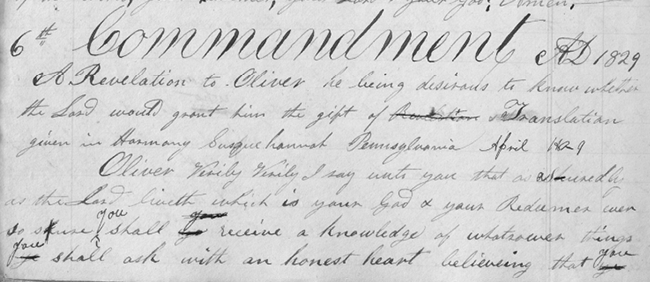 your God; Amen.
6th Commandment AD 1829
A Revelation to Oliver he being desirous to know whether
the Lord would grant him the gift of Translation
given in Harmony Susquehannah Pennsylvania April 1829
Oliver Verily Verily I say unto you that as assuredly
as the Lord liveth which is your God & your Redeemer even
so sure you shall receive a knowledge of whatsoever things
you shall ask with an honest heart believeing that you